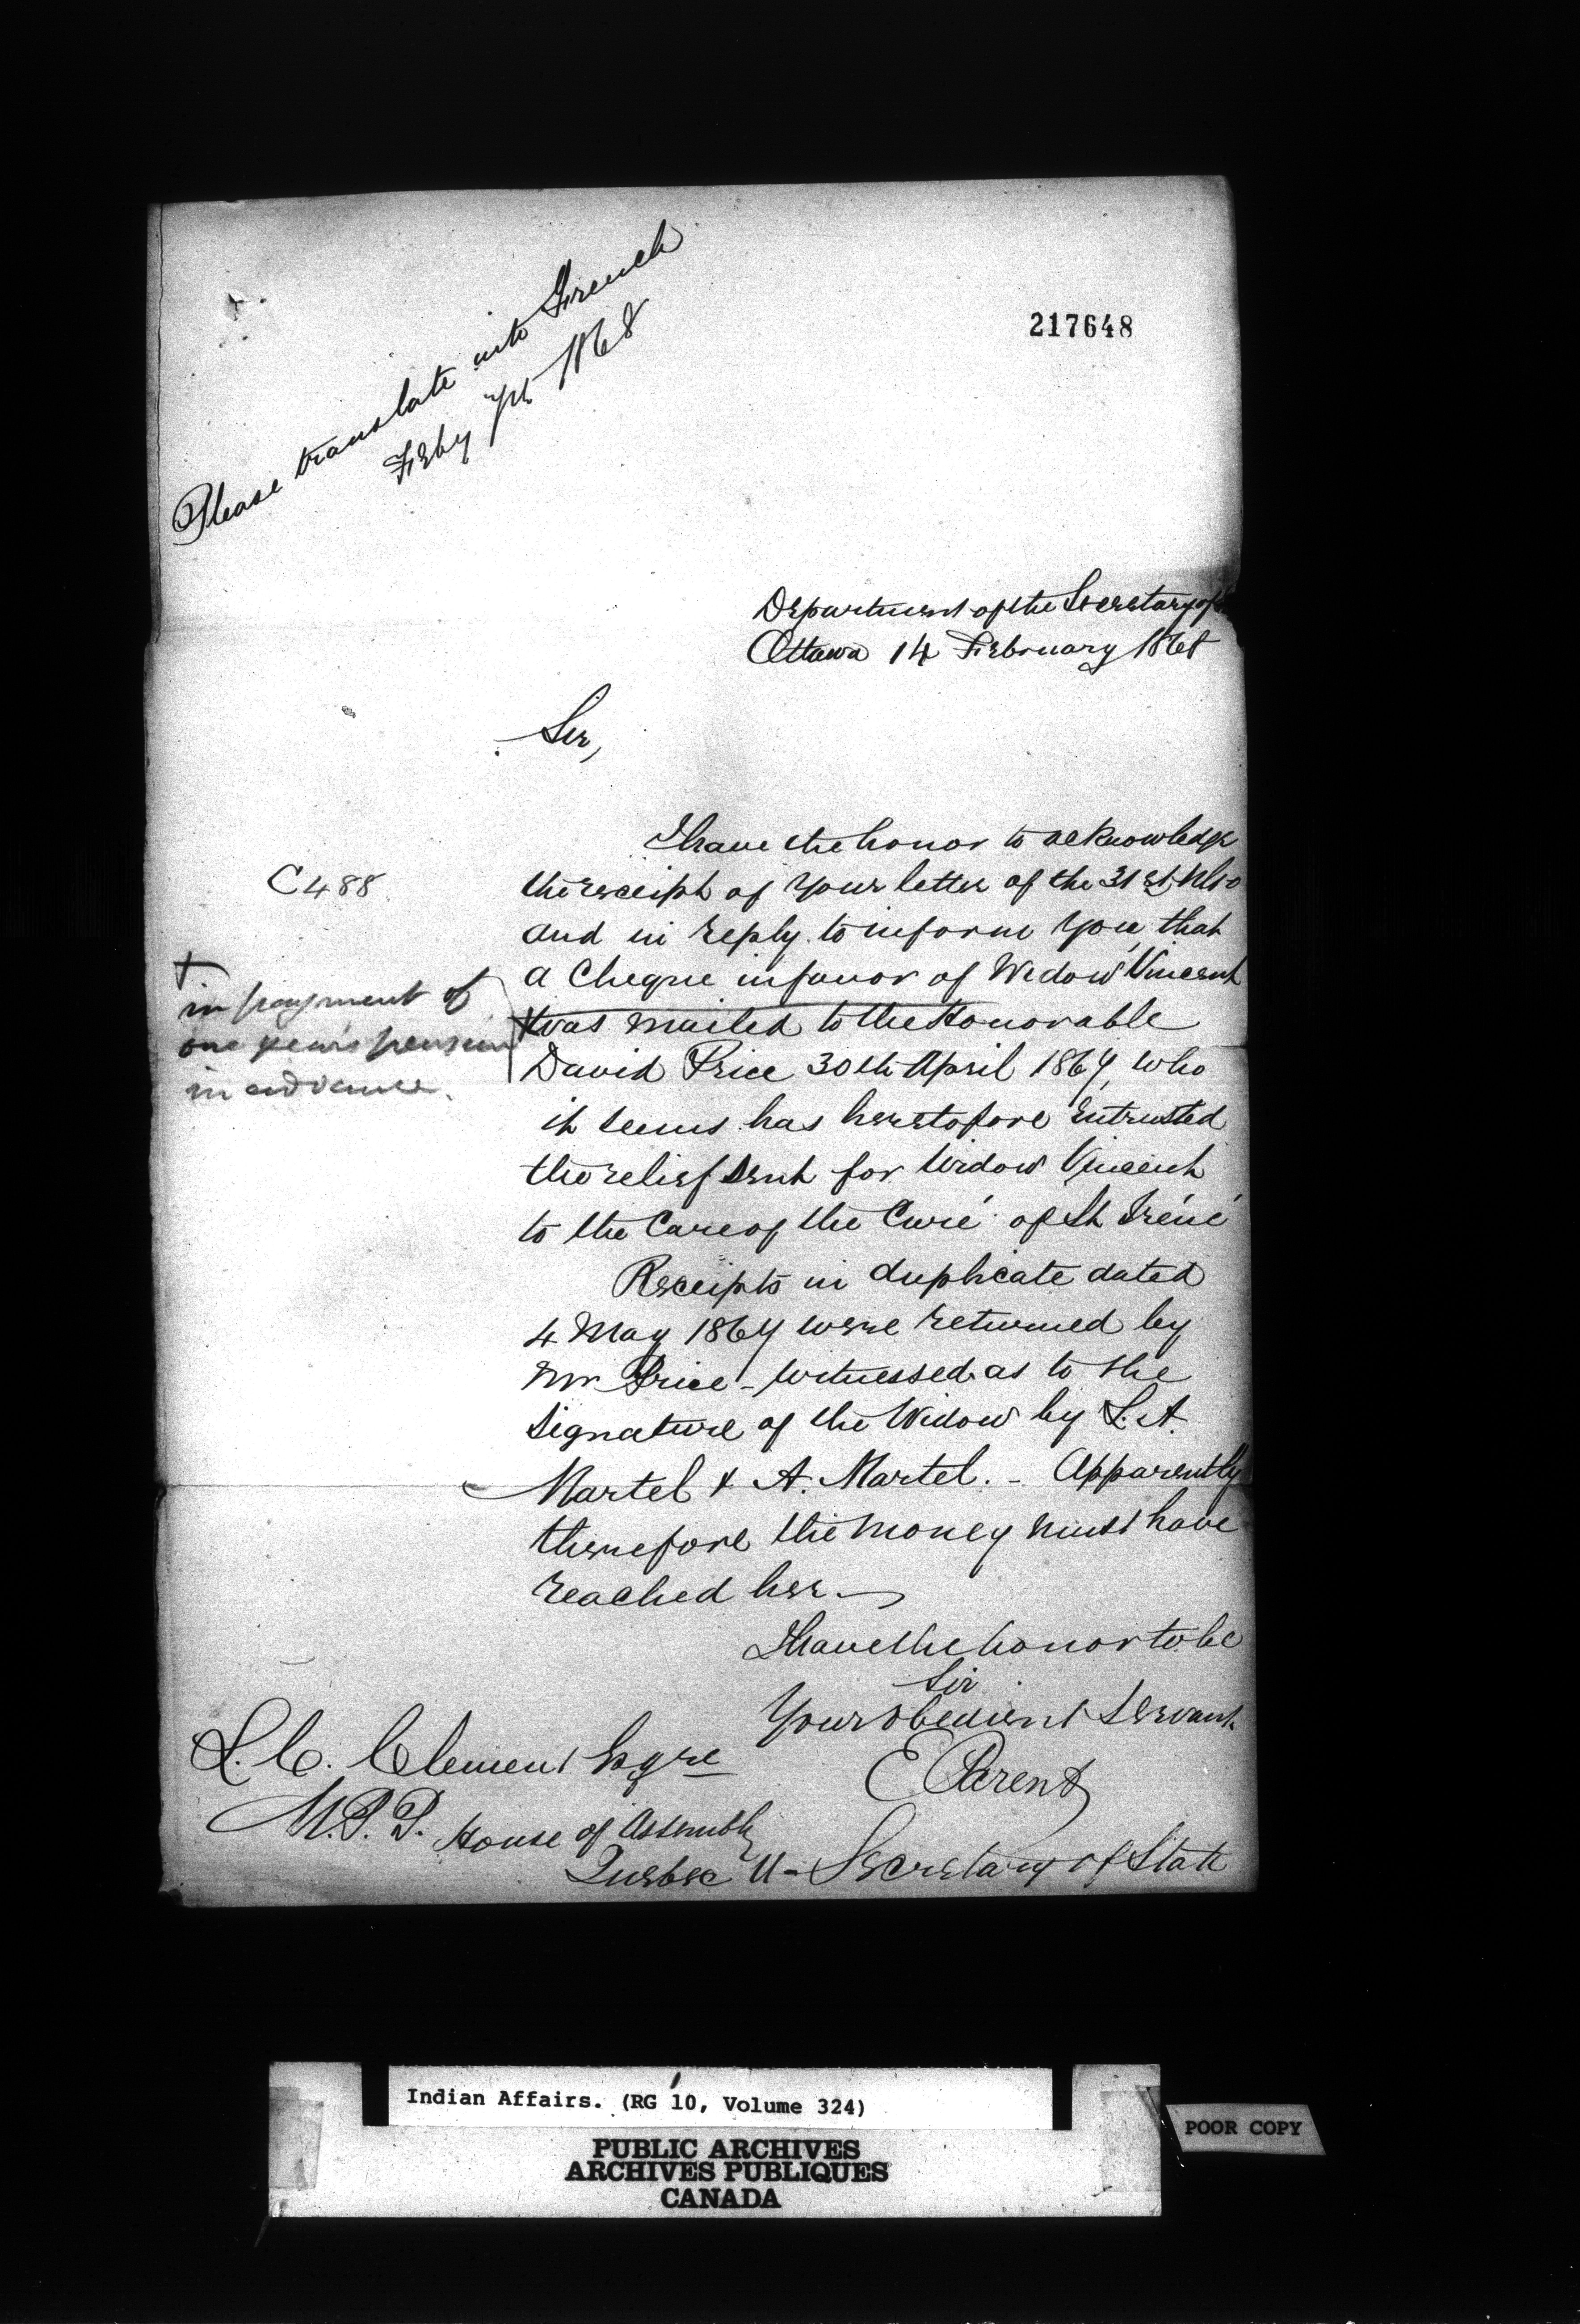 Please translate into French
Feby 7th 1868
217648
Department of the Secretary of
Ottawa 14 February 1868
Sir,
I have the honor to acknowledge
C 488.
the receipt of your letter of the 31st Ulto
and in reply to inform you that
a Cheque in favor of Widow Vincent
+
in payment of
one year's pension
in advance.
+ was mailed to the Honorable
David Price 30th April 1867, who
it seems has heretofore entrusted
the relief sent for Widow Vincent
to the Care of the Curé of St Iréné
Receipts in duplicate dated
4 May 1867 were returned by
Mr Price - witnessed as to the
signature of the Widow by L. A.
Martel & A. Martel. - Apparently
therefore the money must have
reached her -
I have the honor to be
Sir
Your obedient servant
E Parent
U - Secretary of State
L. C. Clement Esqre
M.P.P. House of Assembly
Quebec
Indian Affairs. (RG 10, Volume 324)
PUBLIC ARCHIVES
ARCHIVES PUBLIQUES
CANADA
POOR COPY